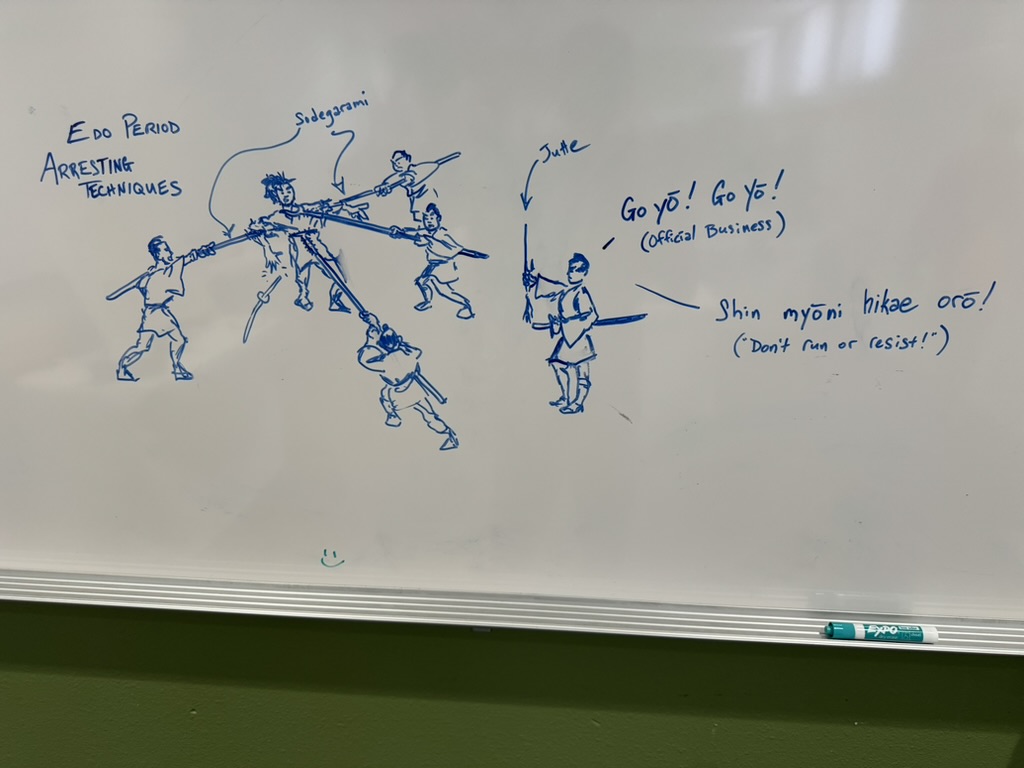 EDO PERIOD
ARRESTING
TECHNIQUES
Sodegarami
Jutte
Go yō! Go yō!
(Official Business)
Shin myōni hikae orō!
("Don't run or resist!")
EXPO